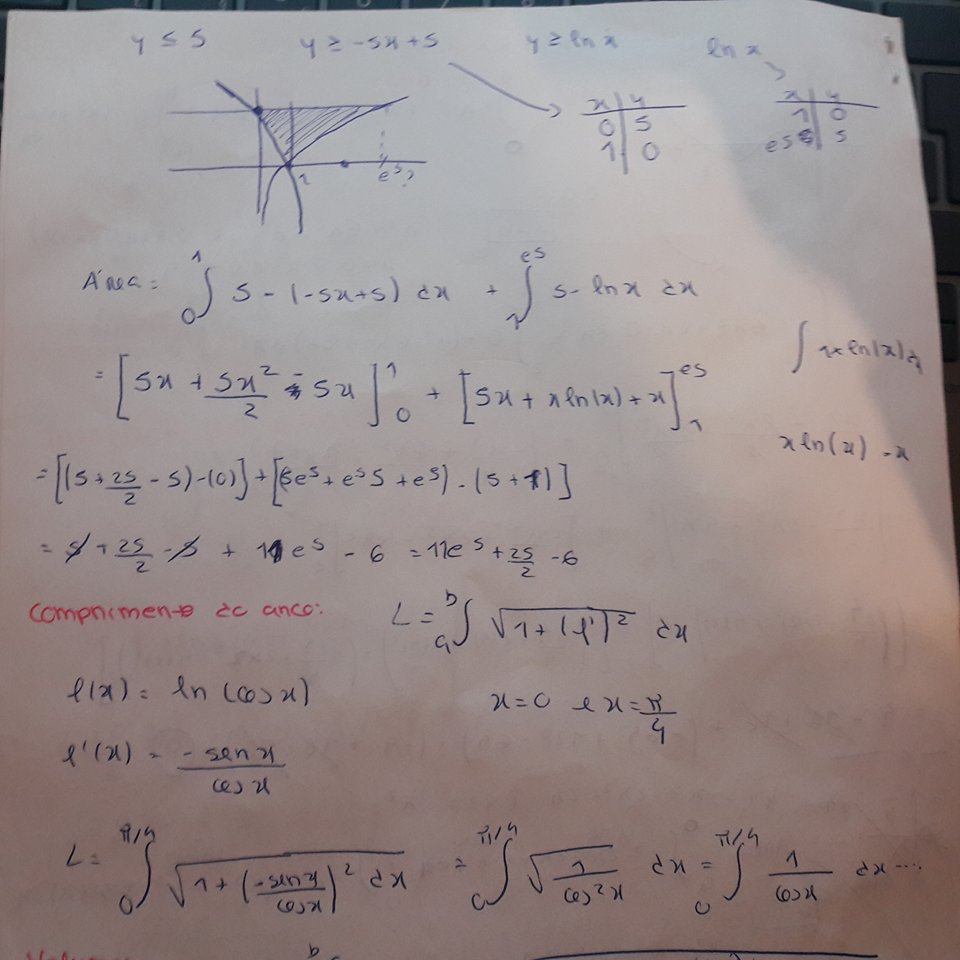 y ≤ 5 y ≥ -5x+5 y ≥ ln x ln x
x | y
0 | 5
1 | 0
x | y
1 | 0
e5 | 5
1 e5?
Área = ∫₀¹ 5 - (-5x+5) dx + ∫₁^e5 5 - ln x dx
= [5x + 5x²/2 - 5x]₀¹ + [5x + x ln(x) + x]₁^e5
x ln(x) - x
= [(5 + 25/2 - 5) - (0)] + [(5e⁵ + e⁵5 + e⁵) - (5 + 1)]
= 5 + 25/2 - 5 + 11e⁵ - 6 = 11e⁵ + 25/2 - 6
Comprimento do arco: L = ∫ₐᵇ √(1 + (f')²) dx
f(x) = ln (cos x) x=0 e x=π/4
f'(x) = -sen x / cos x
L = ∫₀^π/4 √(1 + (-sen x / cos x)² dx) = ∫₀^π/4 √(1/cos²x) dx = ∫₀^π/4 1/cos x dx ...